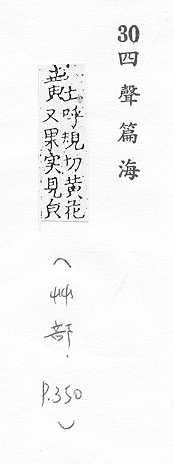 30 四聲篇海
蘳呼規切黄花
又果实見皃
（艸部．P.350）